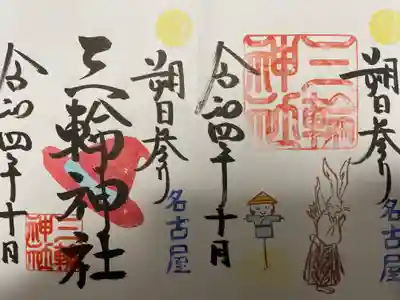 朔日参り
名古屋
三輪
神社
令和四年十月
朔日参り
名古屋
三輪神社
三輪
神社
令和四年十月